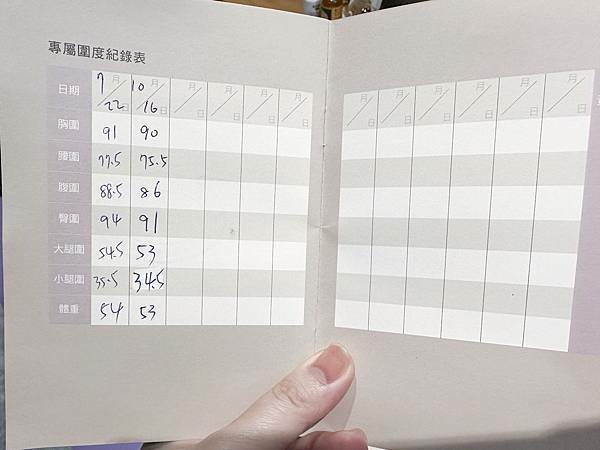 專屬圍度紀錄表
日期 7月22日 10月16日 月日 月日 月日 月日 月日 月日 月日 月日 月日 月日
胸圍 91 90
腰圍 77.5 75.5
腹圍 88.5 86
臀圍 94 91
大腿圍 54.5 53
小腿圍 35.5 34.5
體重 54 53